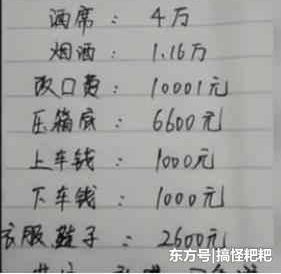 酒席： 4万
烟酒： 1.16万
改口费： 10001元
压箱底： 6600元
上车钱： 1000元
下车钱： 1000元
衣服鞋子： 2600元
东方号|搞怪粑粑